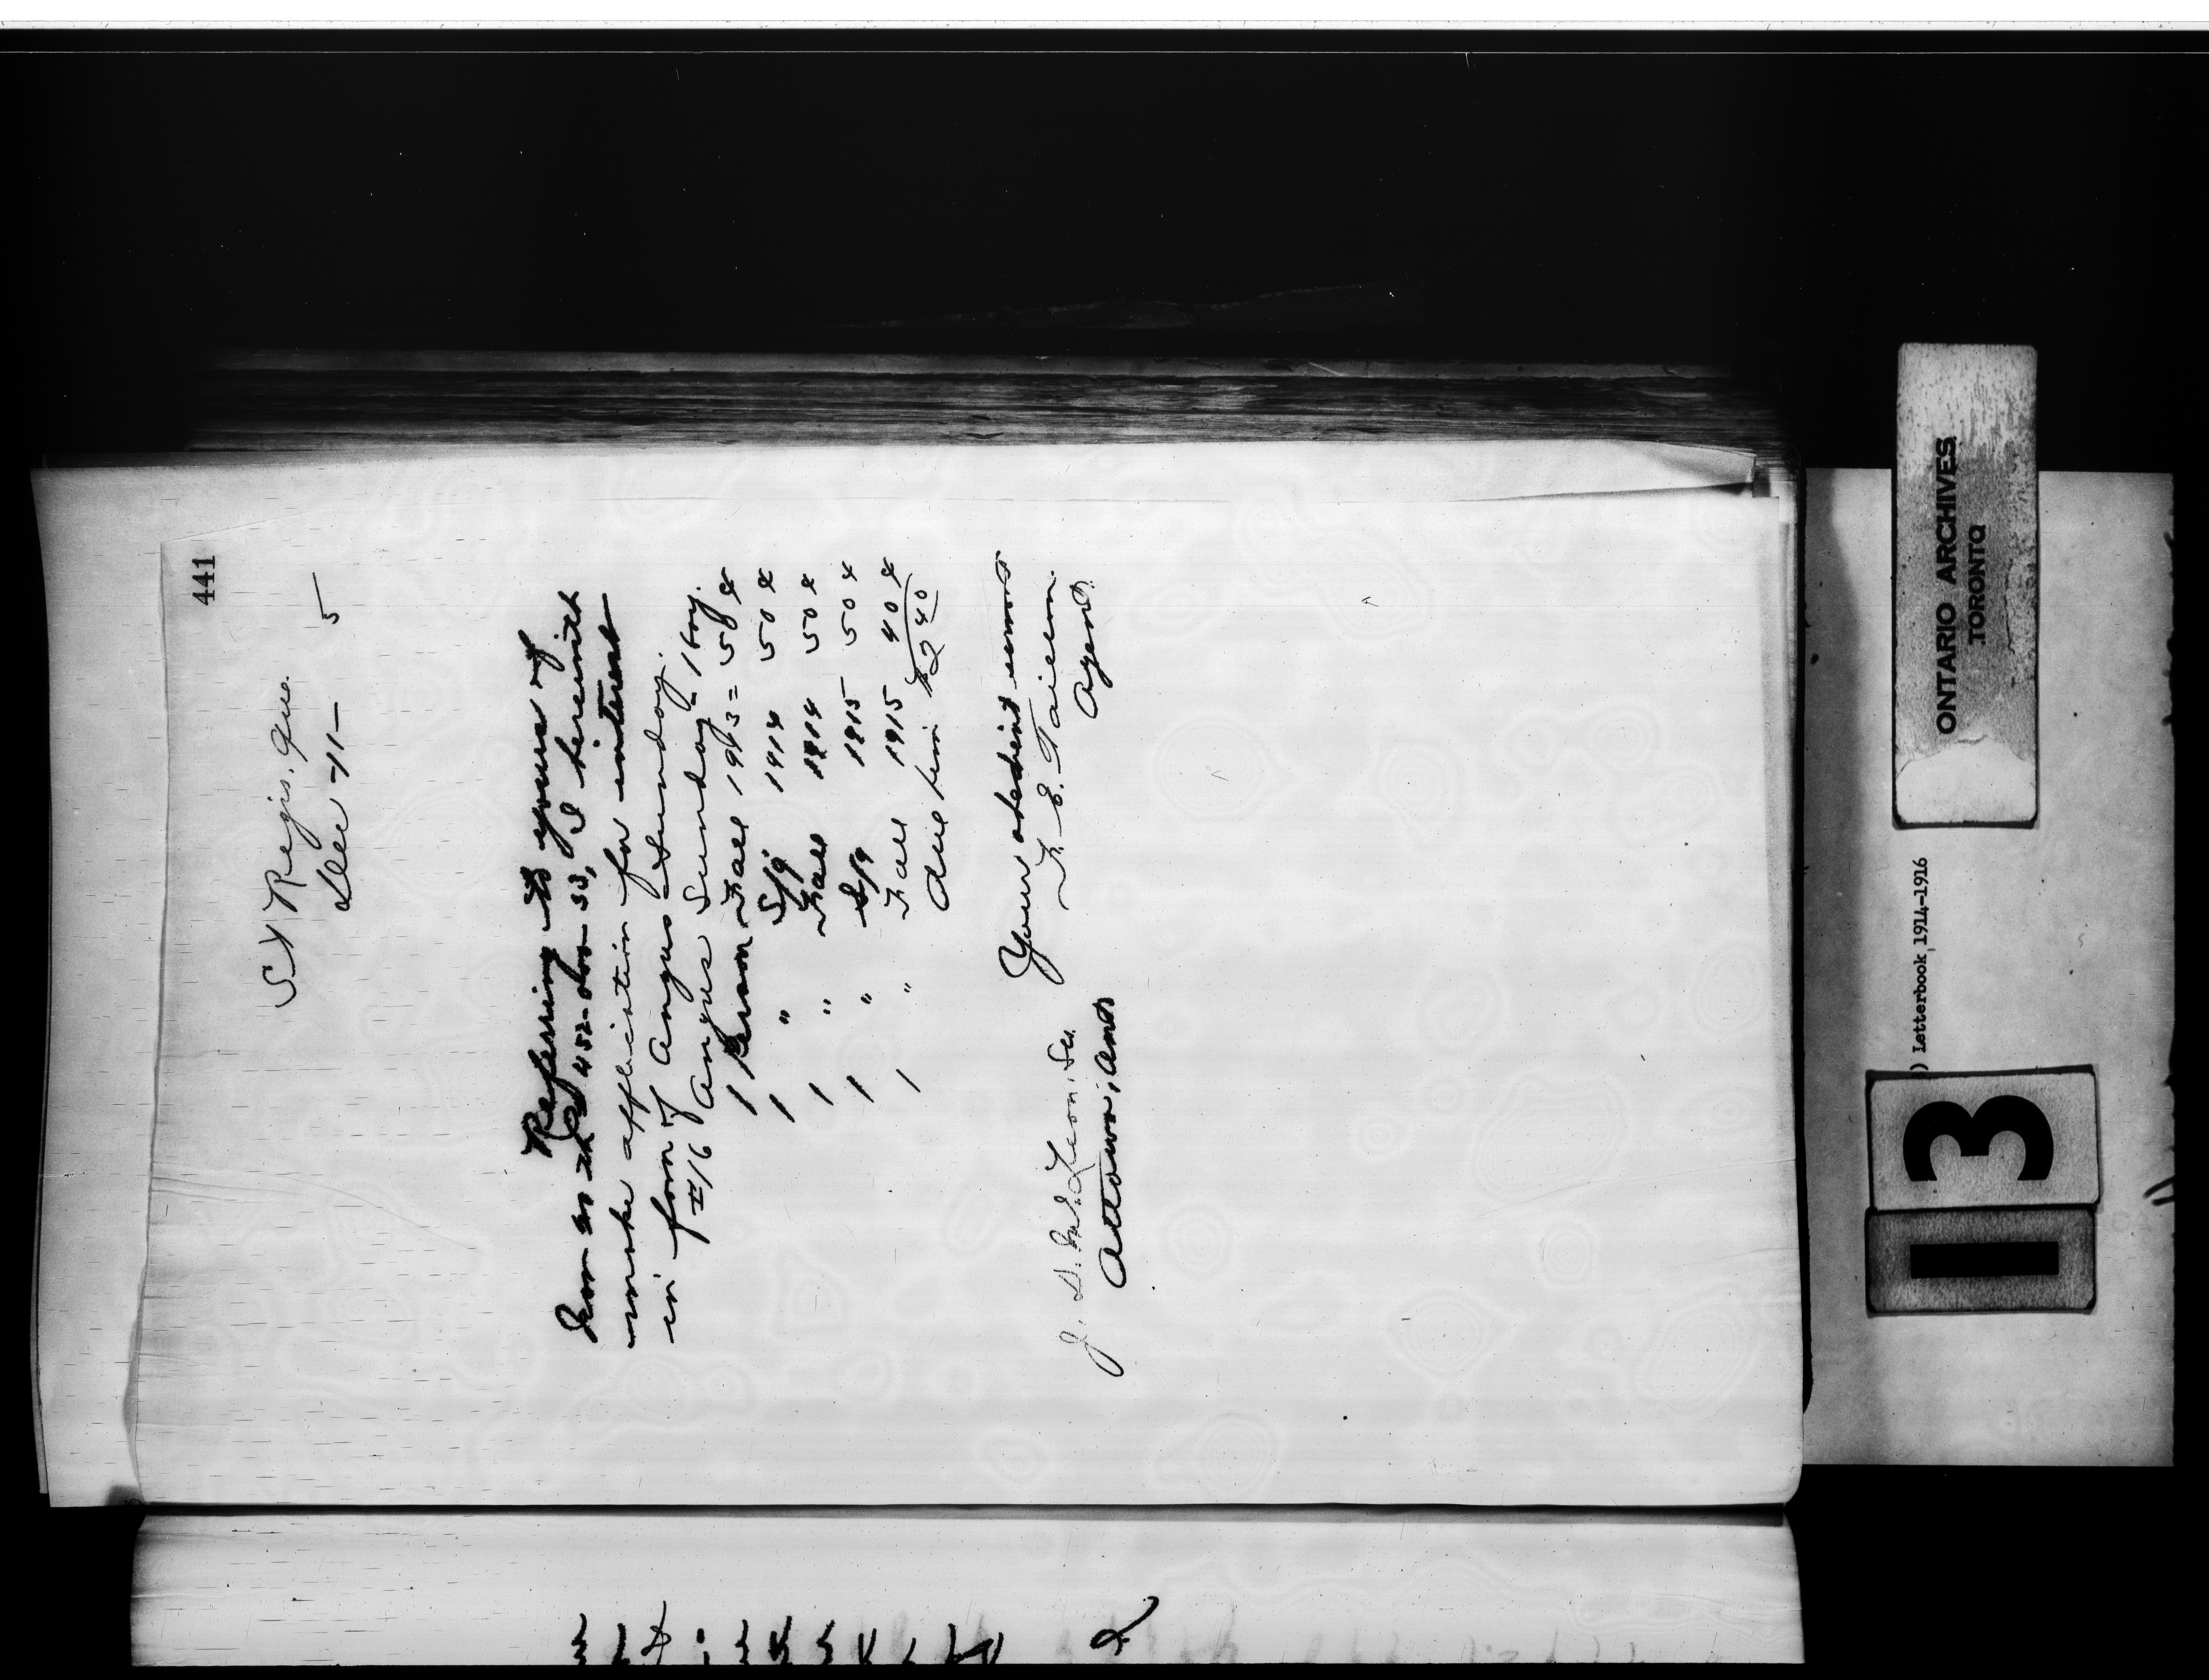 441
St Regis, Que.
Dec 11— 5
Referring to yours of
make application for interest
in favor of Angus Sunday.
#16 Angus Sunday = 1 boy.
1 Person Fall 1913 = 50 ¢
1 " Spg 1914 50 ¢
1 " Fall 1914 50 ¢
1 " Spg 1915 50 ¢
1 " Fall 1915 40 ¢
Due him $2 40
Your obedient servant
F. E. Taillon
Agent.
J. D. McLean, Sec.
Ottawa, Ont
ONTARIO ARCHIVES
TORONTO
) Letterbook 1914-1916
13